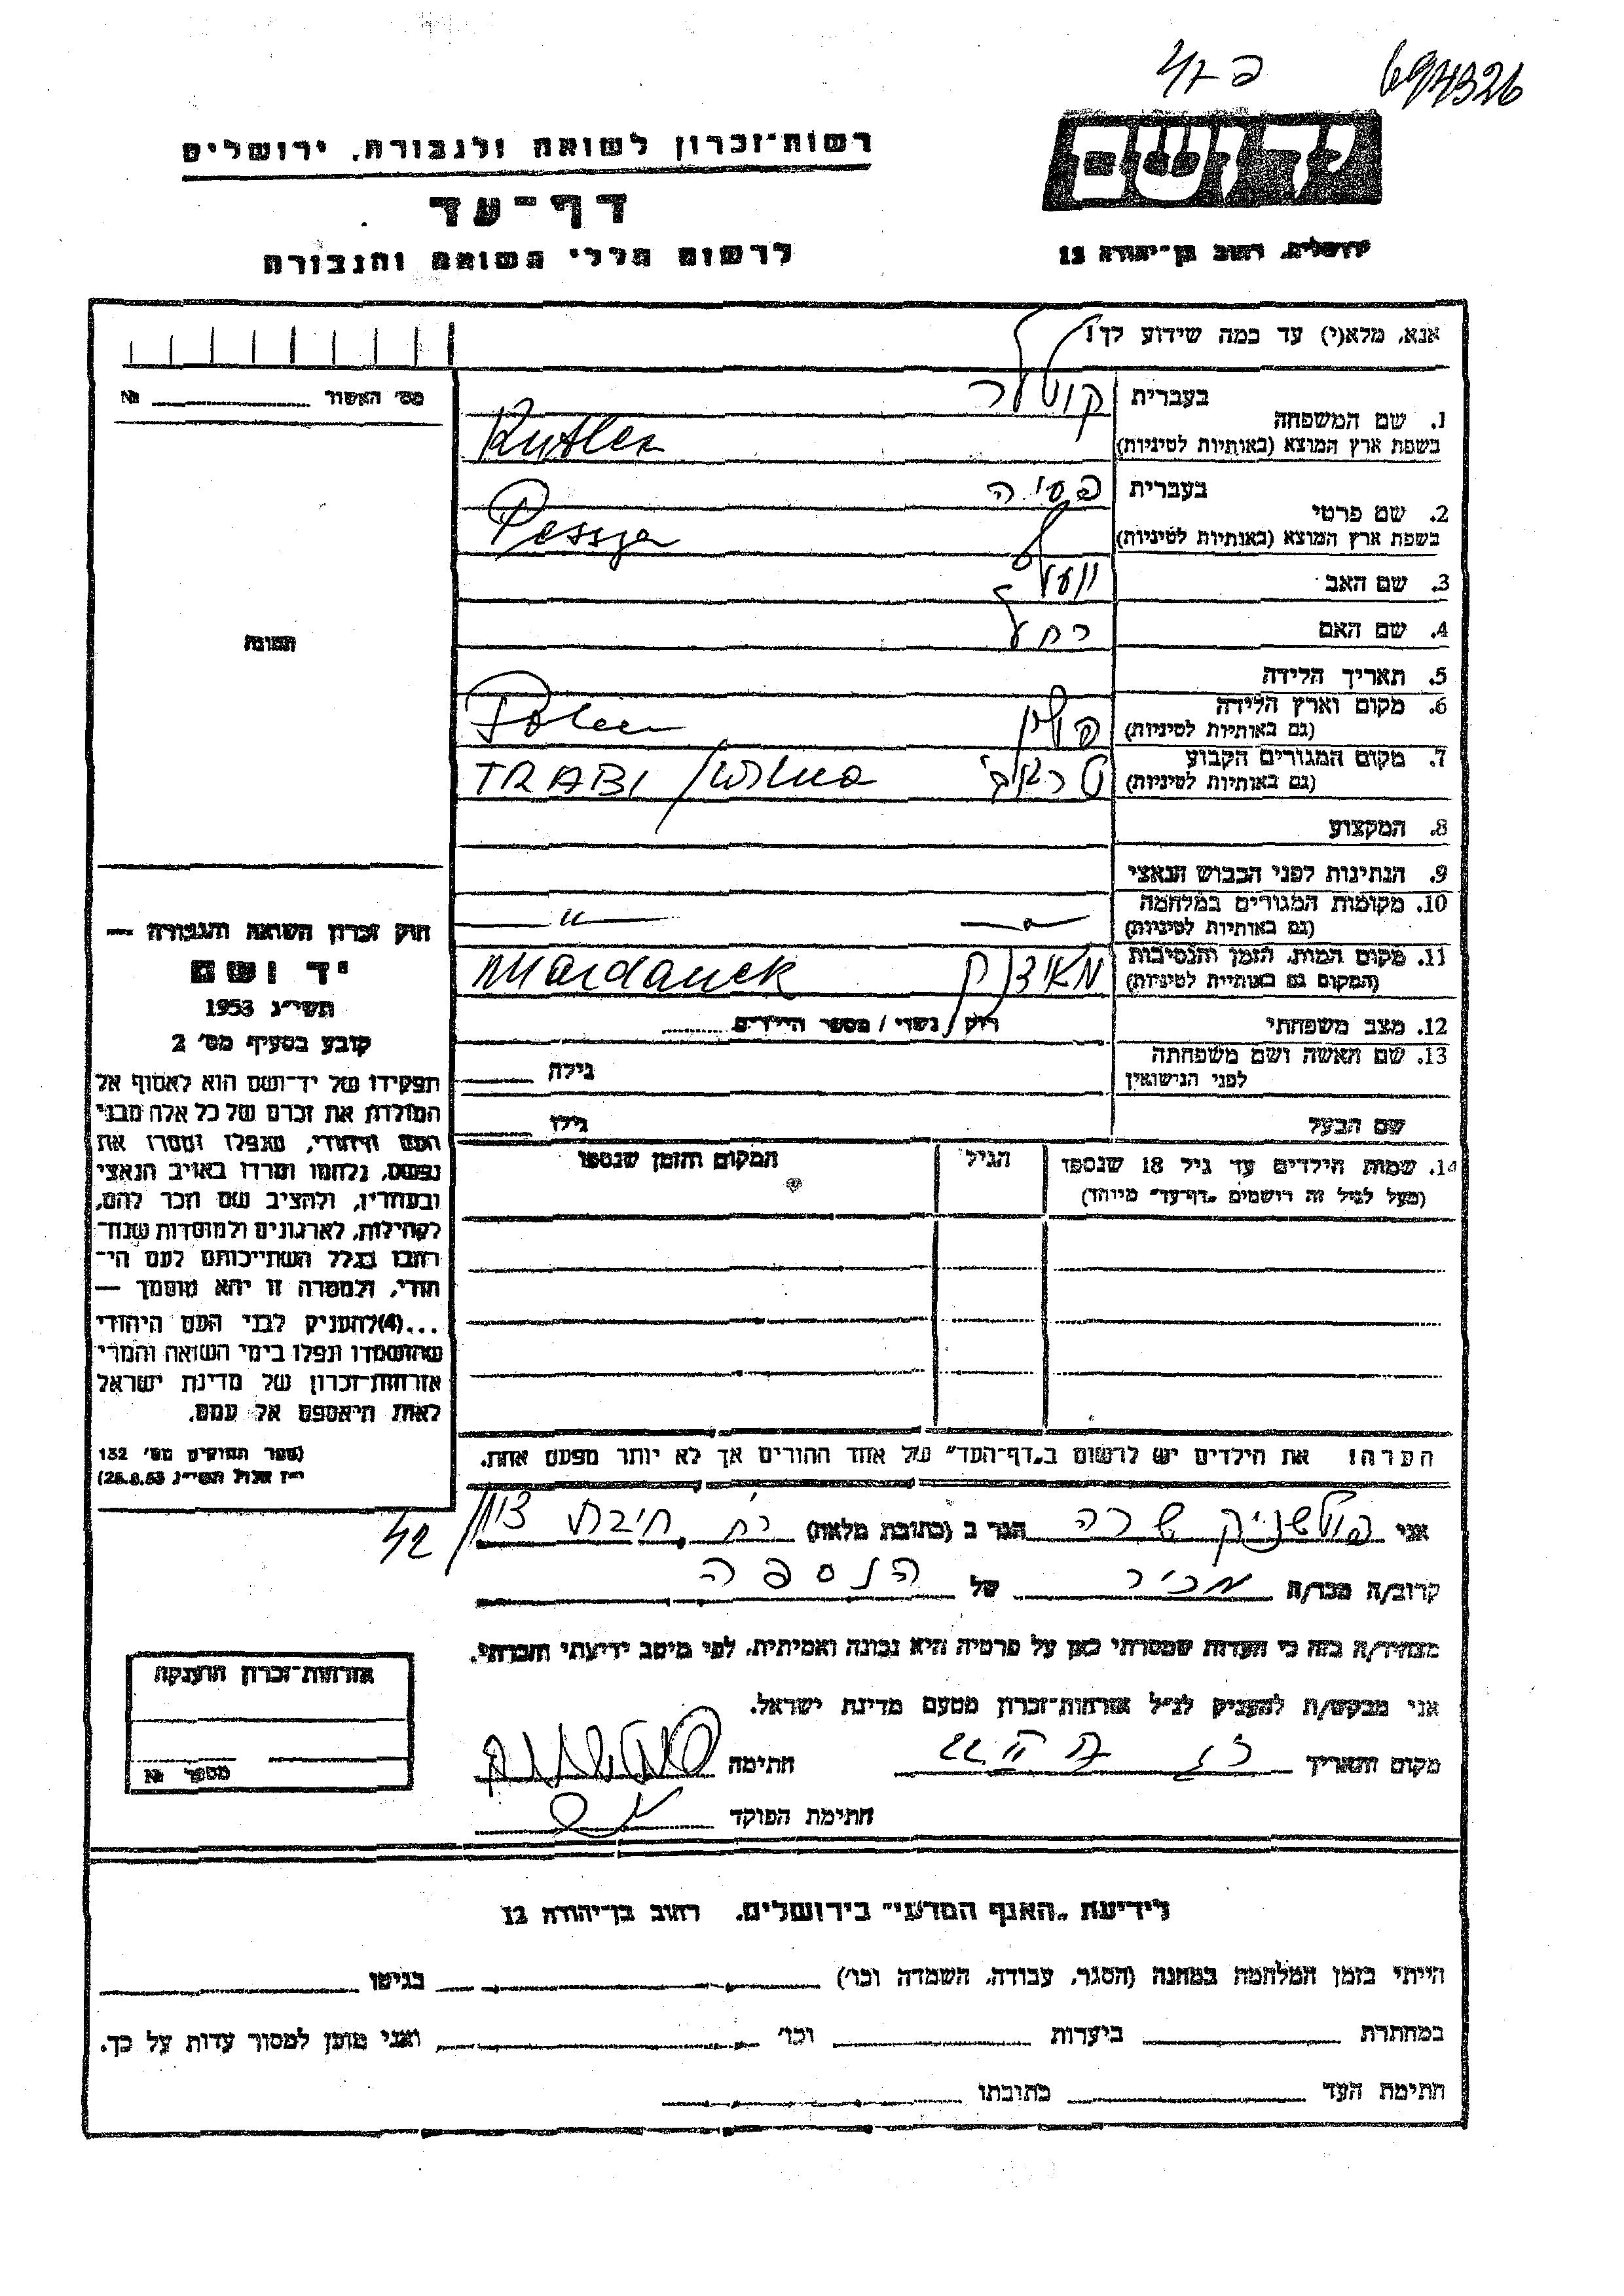 694326
רשות־זכרון לשואה ולגבורה, ירושלים
דף־עד
לרשום חללי השואה והגבורה
יד ושם
ירושלים, רחוב בן־יהודה 12
אנא, מלא(י) עד כמה שידוע לך!
מס׳ האשור № 
1. שם המשפחה בעברית קוטלר
בשפת ארץ המוצא (באותיות לטיניות) Kutler
2. שם פרטי בעברית פסיה
בשפת ארץ המוצא (באותיות לטיניות) Pessya
3. שם האב
4. שם האם רחל
תמונה
5. תאריך הלידה
6. מקום וארץ הלידה (גם באותיות לטיניות) פולין Polen
7. מקום המגורים הקבוע (גם באותיות לטיניות) טראבי TRABI / Wilna
8. המקצוע
9. הנתינות לפני הכבוש הנאצי
10. מקומות המגורים במלחמה (גם באותיות לטיניות) — " —
11. מקום המות, הזמן והנסיבות (המקום גם באותיות לטיניות) מאידנק Maidanek
12. מצב משפחתי רוק / נשוי / מספר הילדים
13. שם האשה ושם משפחתה לפני הנישואין גילה
שם הבעל גילו
14. שמות הילדים עד גיל 18 שנספו (מעל לגיל זה רושמים „דף־עד" מיוחד) הגיל המקום והזמן שנספו
חוק זכרון השואה והגבורה —
יד ושם
תשי״ג 1953
קובע בסעיף מס׳ 2
תפקידו של יד־ושם הוא לאסוף אל
המולדת את זכרם של כל אלה מבני
העם היהודי, שנפלו ומסרו את
נפשם, נלחמו ומרדו באויב הנאצי
ובעוזריו, ולהציב שם וזכר להם,
לקהילות, לארגונים ולמוסדות שנח־
רבו בגלל השתייכותם לעם הי־
הודי, ולמטרה זו יהא מוסמך —
...(4)להעניק לבני העם היהודי
שהושמדו ונפלו בימי השואה והמרי
אזרחות־זכרון של מדינת ישראל
לאות היאספם אל עמם.
(ספר החוקים מס׳ 132
י״ז אלול תשי״ג 28.8.53)
הערה! את הילדים יש לרשום ב„דף־העד" של אחד ההורים אך לא יותר מפעם אחת.
אני פולשניק שרה הגר ב (כתובת מלאה) רח חיבת ציון 42
קרוב/ה מכר/ה מכיר של הנספה
מצהיר/ה בזה כי העדות שמסרתי כאן על פרטיה היא נכונה ואמיתית, לפי מיטב ידיעתי והכרתי.
אני מבקש/ת להעניק לנ״ל אזרחות־זכרון מטעם מדינת ישראל.
מקום ותאריך חתימה
חתימת הפוקד
אזרחות־זכרון הוענקה
מספר №
לידיעת „האגף המדעי" בירושלים, רחוב בן־יהודה 12
הייתי בזמן המלחמה במחנה (הסגר, עבודה, השמדה וכו׳) בגיטו
במחתרת ביערות וכו׳ ואני מוכן למסור עדות על כך.
חתימת העד כתובתו